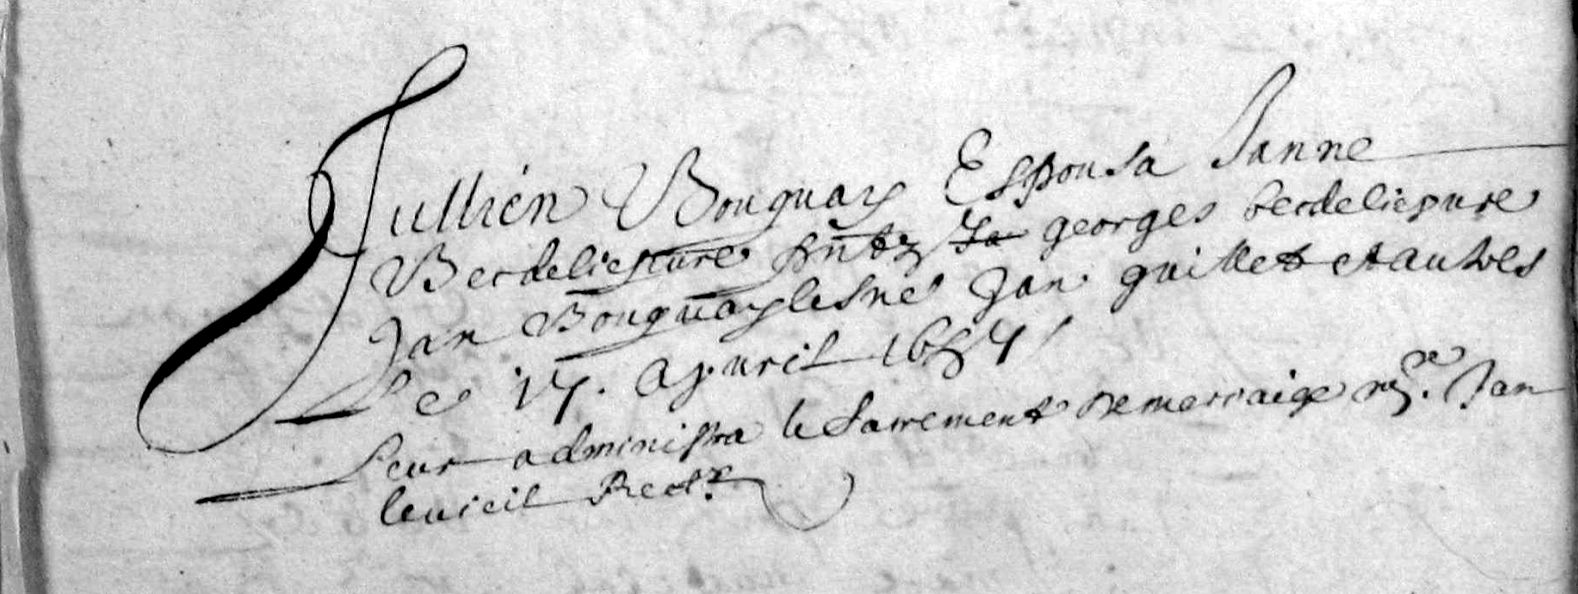 Jullien Bouguay Espousa Janne
Berdeliepure pntz Ja georges berdeliepure
Jan Bouguay lesne Jan guillet et autres
Le 17. Apuril
Leur administra le sacrement de mariaige Jan
levieil Rectr